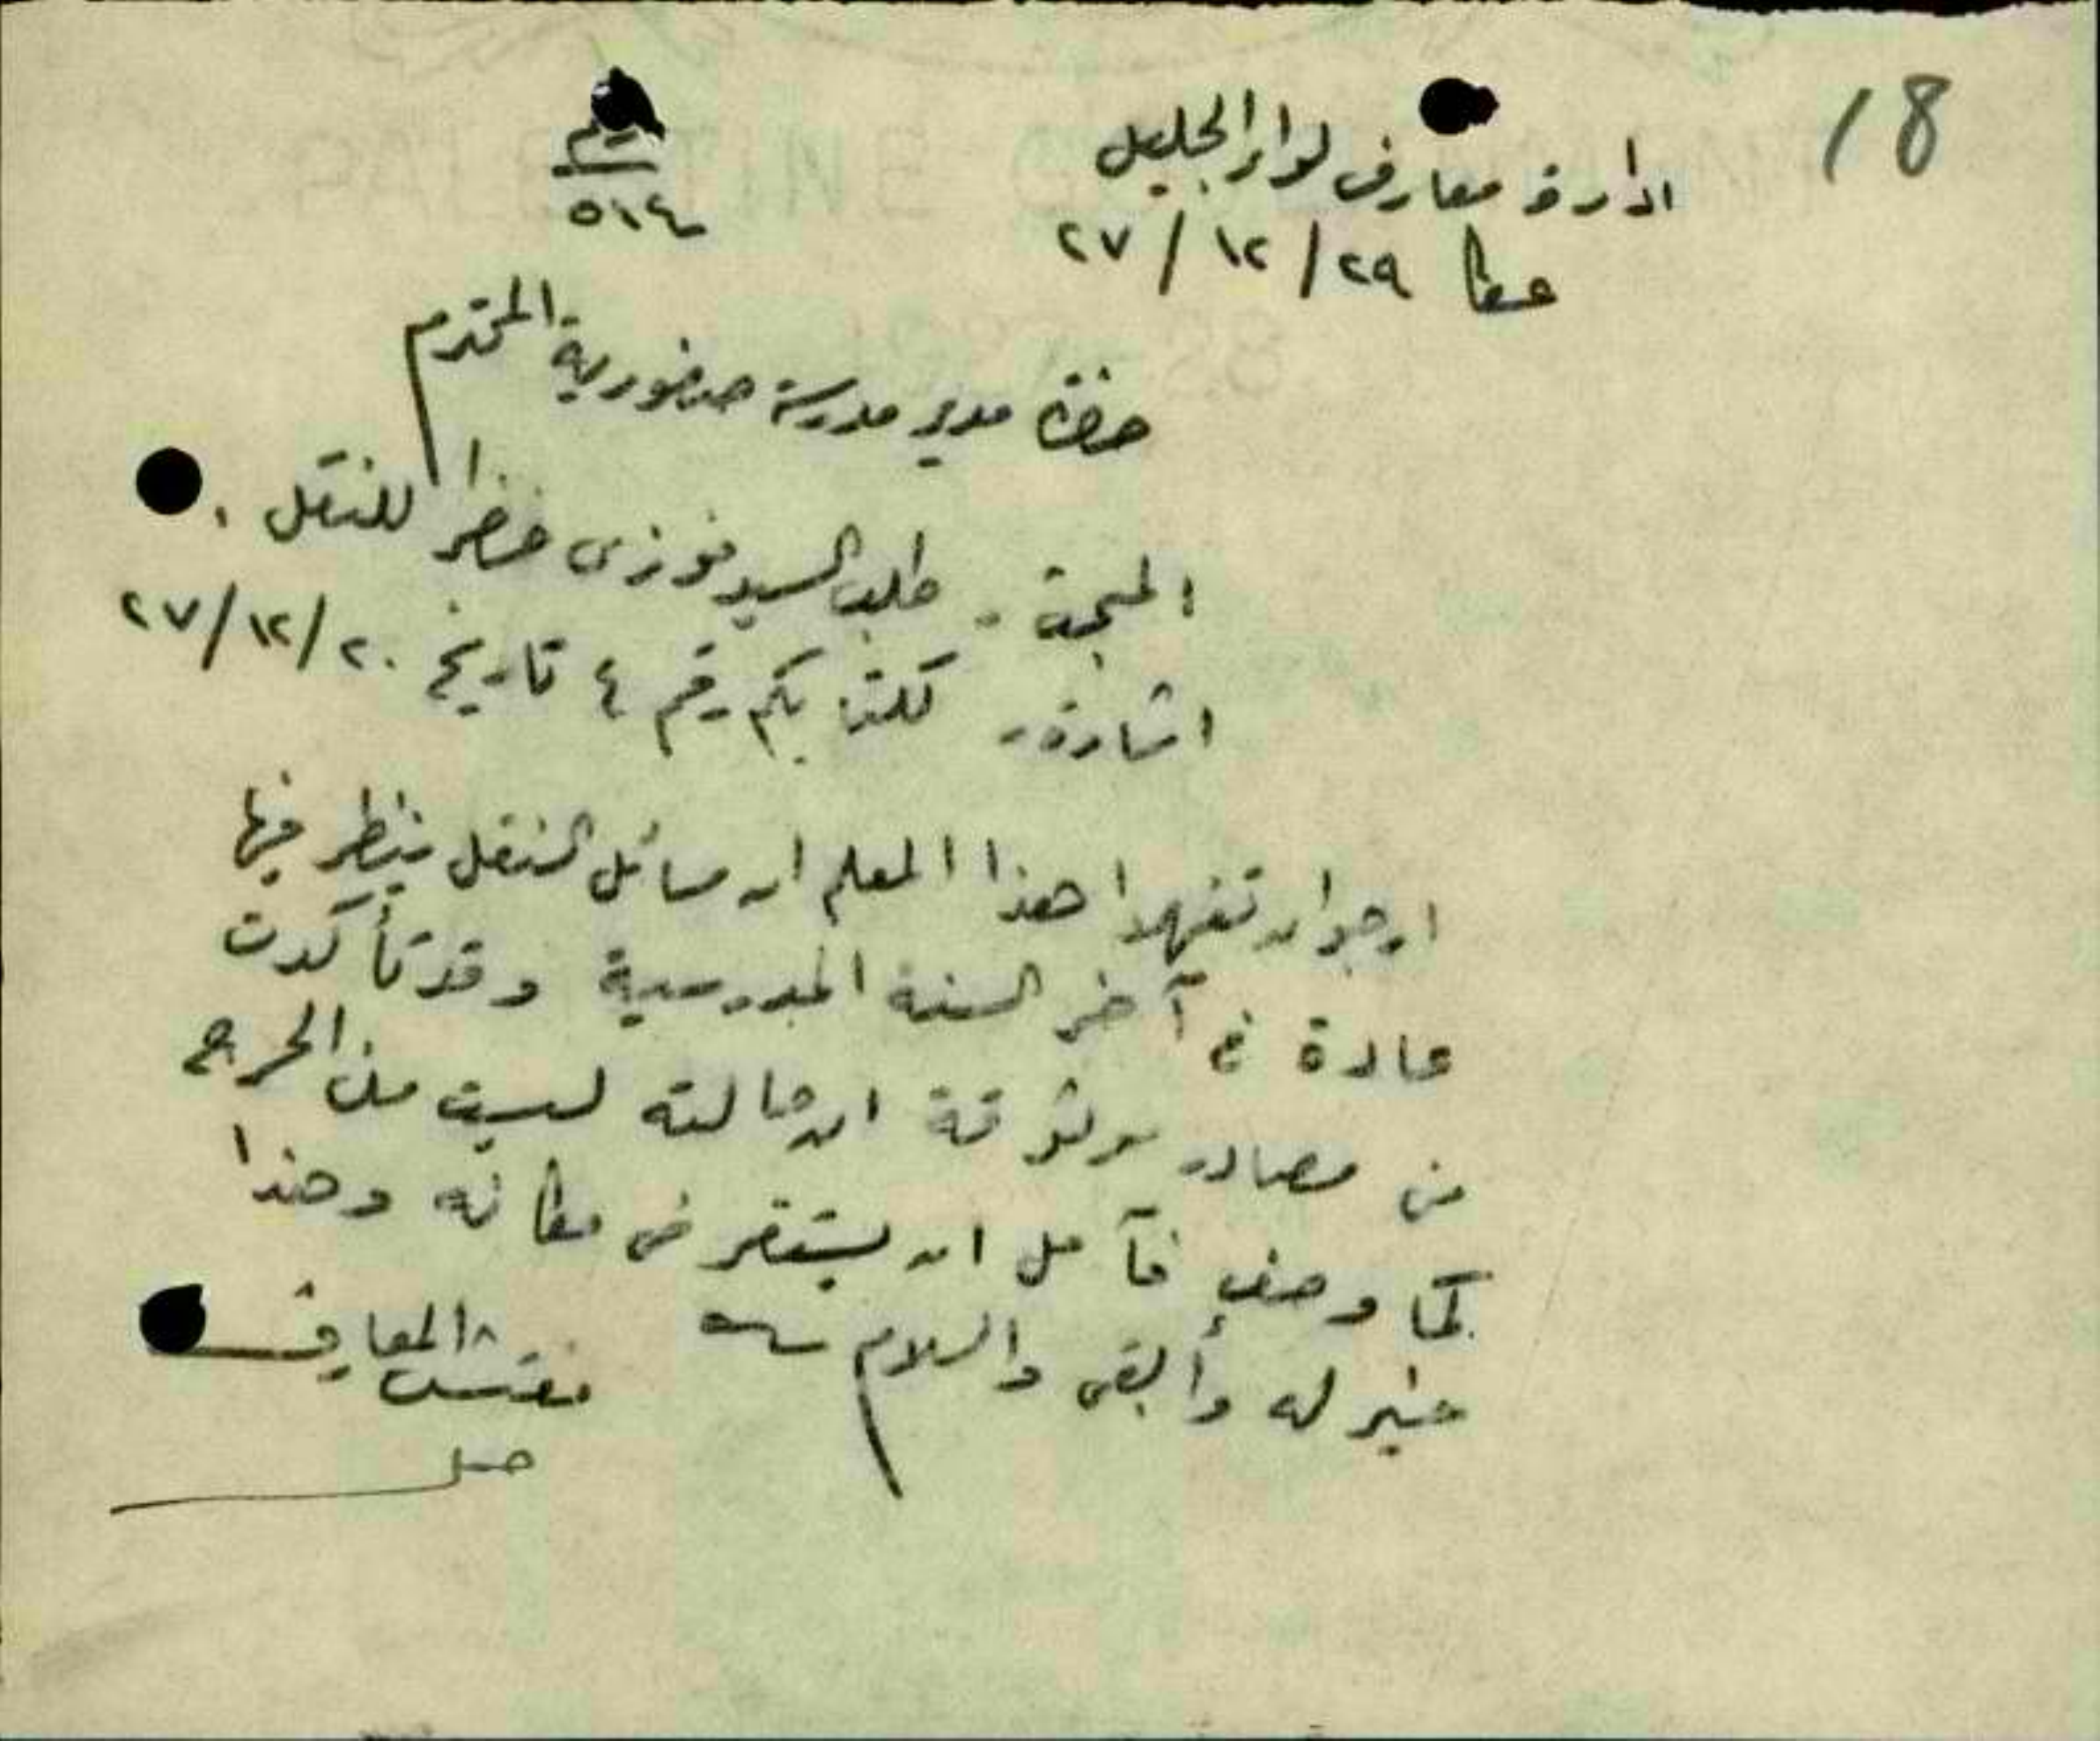 18
ادارة معارف لواء الجليل
عكا ٢٩ / ١٢ / ٢٧
رقم
٥١٤
حضرة مدير مدرسة صفورية المحترم
المبحث - طلب السيد فوزى خضرا للنقل .
اشارة - كتابكم رقم ٤ تاريخ ٢٠ / ١٢ / ٢٧
ارجو ان تفهموا هذا المعلم ان مسائل النقل ينظر فيها
عادة في آخر السنة المدرسية وقد تأكدت
من مصادر موثوقة ان حالته ليست من الحرج
كما وصف فآمل ان يستقر في مكانه وهذا
خير له وأبقى والسلام
مفتش المعارف